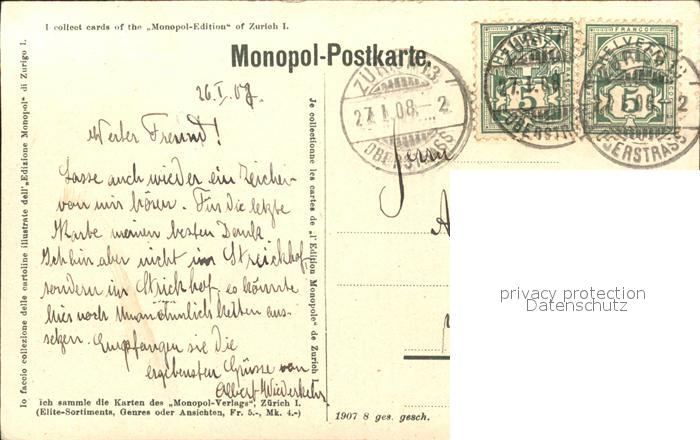 I collect cards of the „Monopol-Edition" of Zurich I.
Monopol-Postkarte.
Io faccio collezione delle cartoline illustrate dell'„Edizione Monopol" di Zurigo I.
Je collectionne les cartes de „l'Edition Monopole" de Zurich I.
26.I.08.
Werter Freund!
Lasse auch wieder ein Zeichen
von mir hören. Für die letzte
Karte meinen besten Dank.
Ich bin aber nicht im Streickhof,
sondern im Strickhof, es könnte
hier noch Unannehmlichkeiten aus-
setzen. Empfangen sie die
ergebensten Grüsse von
Albert Wiederkehr
ich sammle die Karten des „Monopol-Verlags", Zürich I.
(Elite-Sortiments, Genres oder Ansichten, Fr. 5.-, Mk. 4.-)
1907 8 ges. gesch.
ZÜRICH 13
27.I.08.-2
OBERSTRASS
FRANCO
HELVETIA
5
5
27.I.08
OBERSTRASS
2
OBERSTRASS
Herrn
privacy protection
Datenschutz